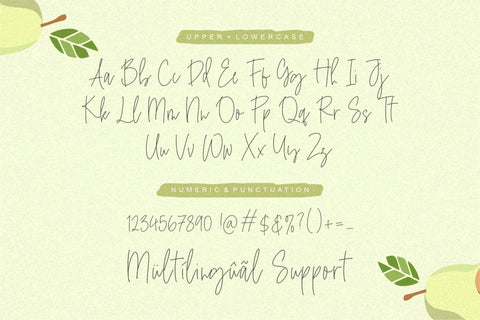 UPPER + LOWERCASE
Aa Bb Cc Dd Ee Ff Gg Hh Ii Jj
Kk Ll Mm Nn Oo Pp Qq Rr Ss Tt
Uu Vv Ww Xx Yy Zz
NUMERIC & PUNCTUATION
1234567890 !@#$&%?()+=_
Mültîlingûãl Support